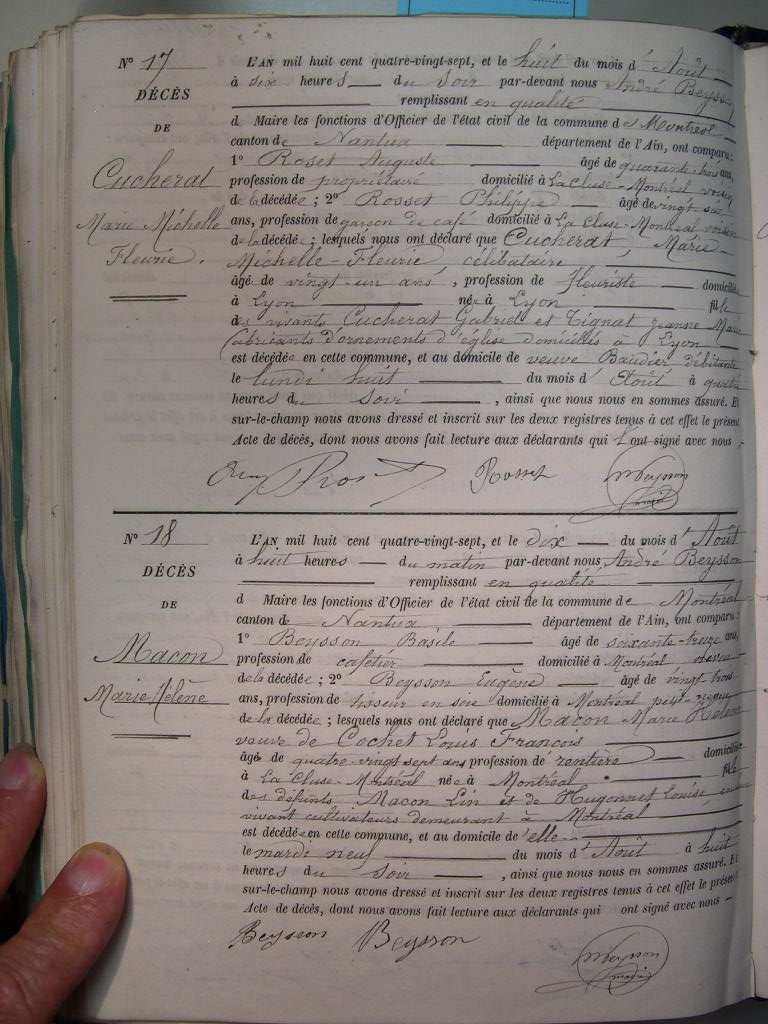 N° 17
DÉCÈS
DE
Cucherat
Marie Michelle
Fleurie.
L'AN mil huit cent quatre-vingt-sept, et le huit du mois d'Août
à six heures du soir par-devant nous André Beysson
remplissant en qualité
d Maire les fonctions d'Officier de l'état civil de la commune de Montréal
canton de Nantua département de l'Ain, ont comparu:
1° Rosset Auguste âgé de quarante-trois ans,
profession de propriétaire domicilié à La Cluse-Montréal voisin
de la décédée; 2° Rosset Philippe âgé de vingt six
ans, profession de garçon de café domicilié à La Cluse-Montréal voisin
de la décédée; lesquels nous ont déclaré que Cucherat, Marie-
Michelle-Fleurie, célibataire
âgée de vingt-un ans, profession de fleuriste domiciliée
à Lyon née à Lyon fille
des vivants Cucherat Gabriel et Tignat Jeanne Marie
fabricants d'ornements d'église domiciliés à Lyon
est décédée en cette commune, et au domicile de veuve Baudier débitante
le lundi huit du mois d'Août à quatre
heures du soir, ainsi que nous nous en sommes assuré. Et
sur-le-champ nous avons dressé et inscrit sur les deux registres tenus à cet effet le présent
Acte de décès, dont nous avons fait lecture aux déclarants qui l'ont signé avec nous.
Rosset
N° 18
DÉCÈS
DE
Macon
Marie Helène
L'AN mil huit cent quatre-vingt-sept, et le dix du mois d'Août
à huit heures du matin par-devant nous André Beysson
remplissant en qualité
d Maire les fonctions d'Officier de l'état civil de la commune de Montréal
canton de Nantua département de l'Ain, ont comparu:
1° Beysson Basile âgé de soixante-treize ans,
profession de cafetier domicilié à Montréal neveu
de la décédée; 2° Beysson Eugène âgé de vingt-trois
ans, profession de tisseur en soie domicilié à Montréal petit-neveu
de la décédée; lesquels nous ont déclaré que Macon Marie Helène
veuve de Cochet Louis François
âgée de quatre-vingt sept ans profession de rentière domiciliée
à La Cluse-Montréal née à Montréal fille
des défunts Macon Lin et de Hugonnet Louise, en leur
vivant cultivateurs demeurant à Montréal
est décédée en cette commune, et au domicile d'elle
le mardi neuf du mois d'Août à huit
heures du soir, ainsi que nous nous en sommes assuré. Et
sur-le-champ nous avons dressé et inscrit sur les deux registres tenus à cet effet le présent
Acte de décès, dont nous avons fait lecture aux déclarants qui ont signé avec nous
Beysson Beysson